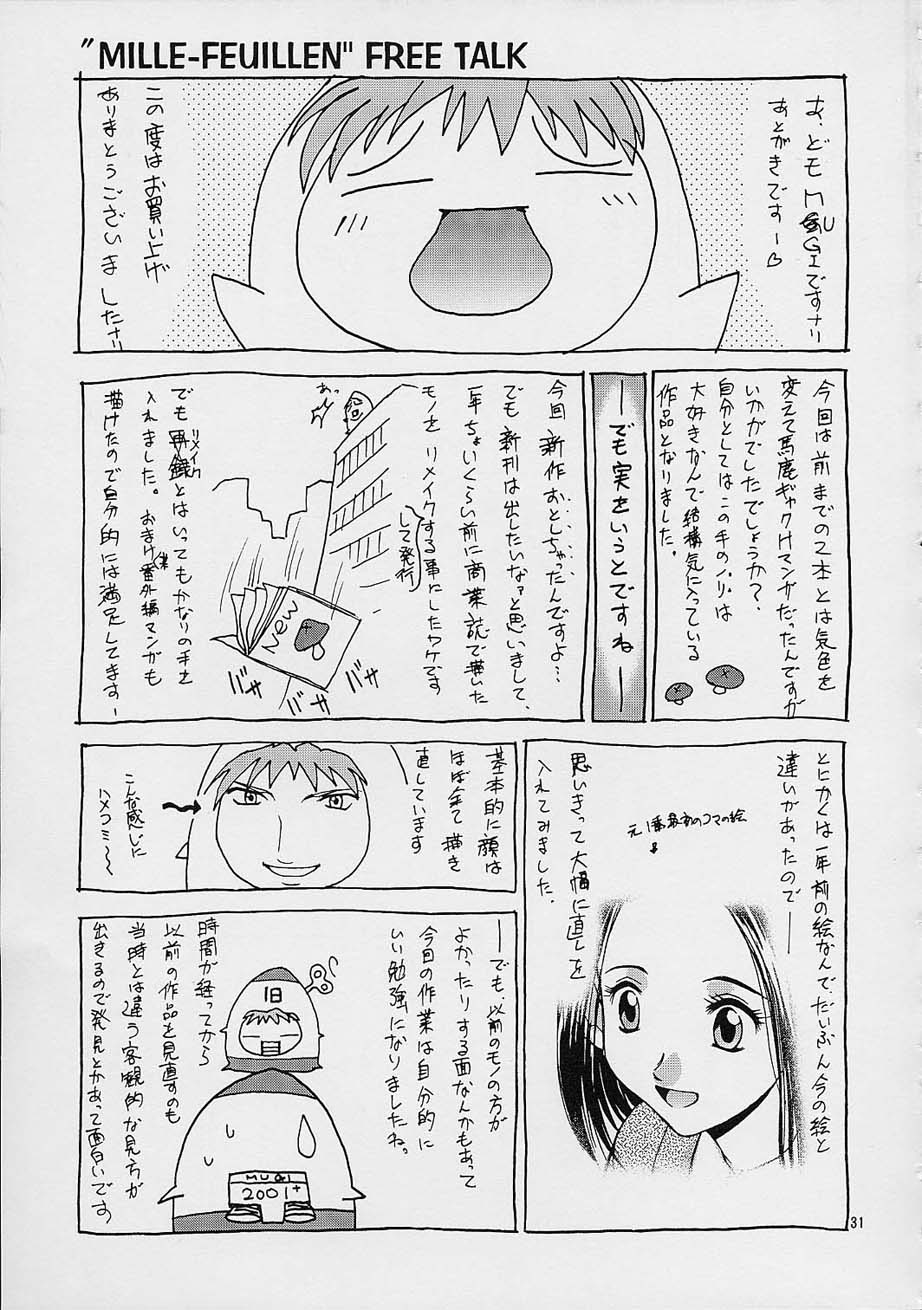 "MILLE-FEUILLEN" FREE TALK
あ、どもMUGIですナリ
あとがきですー♡
この度はお買い上げ
ありまとうございましたナリ
今回は前までの2本とは気色を
変えて馬鹿ギャグマンガだったんですが
いかがでしたでしょうか?
自分としてはこの手のノリは
大好きなんで結構気に入っている
作品となりました。
―でも実をいうとですね―
今回新作おとしちゃったんですよ…
でも新刊は出したいなァと思いまして、
一年ちょいくらい前に商業誌で描いた
モノをリメイクする事にしたワケです
して発行
あっ
NEW
バサ
バサ
バサ
でもリメイクとはいってもかなりの手を
入れました。おまけ番外編マンガも
描けたので自分的には満足してます―
とにかくは一年前の絵なんで、だいぶん今の絵と
違いがあったので――
思いきって大幅に直しを
入れてみました。
元1番最初のコマの絵
基本的に顔は
ほぼ全て描き
直しています
こんな感じに
ハメコミ～
―でも、以前のモノの方が
よかったりする面なんかもあって
今回の作業は自分的に
いい勉強になりましたね。
時間が経ってから
以前の作品を見直すのも
当時とは違う客観的な見方が
出きるので発見とかあって面白いです
旧
MUGI
2001+
31